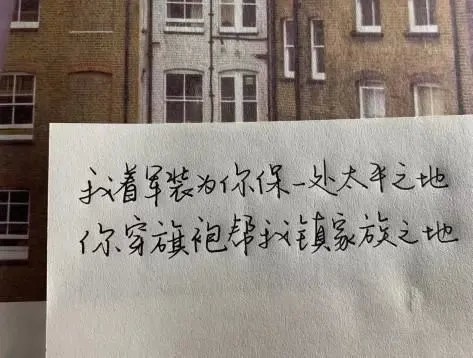 我着军装为你保一处太平之地
你穿旗袍帮我镇家族之地